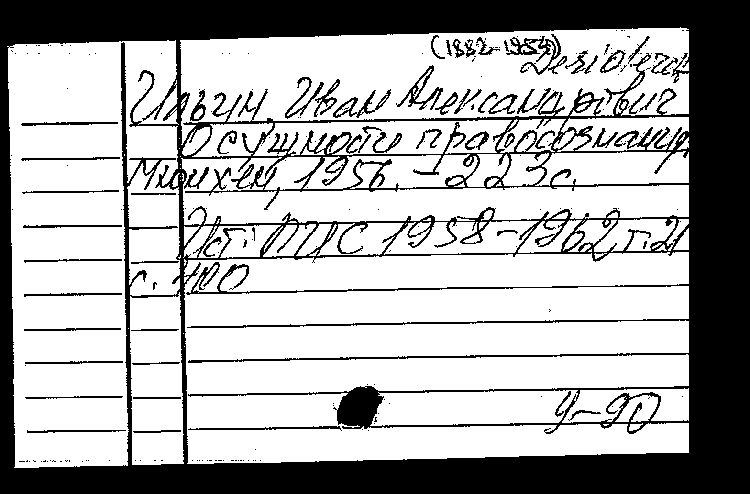 (1882-1954)
Desiderata
Ильин, Иван Александрович
О сущности правосознания.
Мюнхен, 1956. - 223 с.
Ист: ЛЦС 1958-1962 т. 21
с. 400
У-90